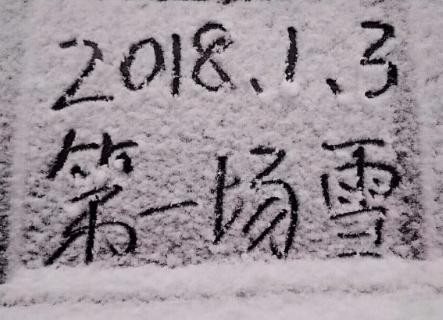 2018.1.3
第一场雪